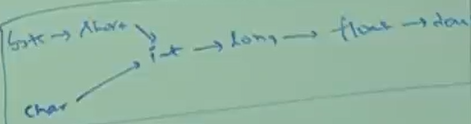 byte → short
int → long → float → dou
char